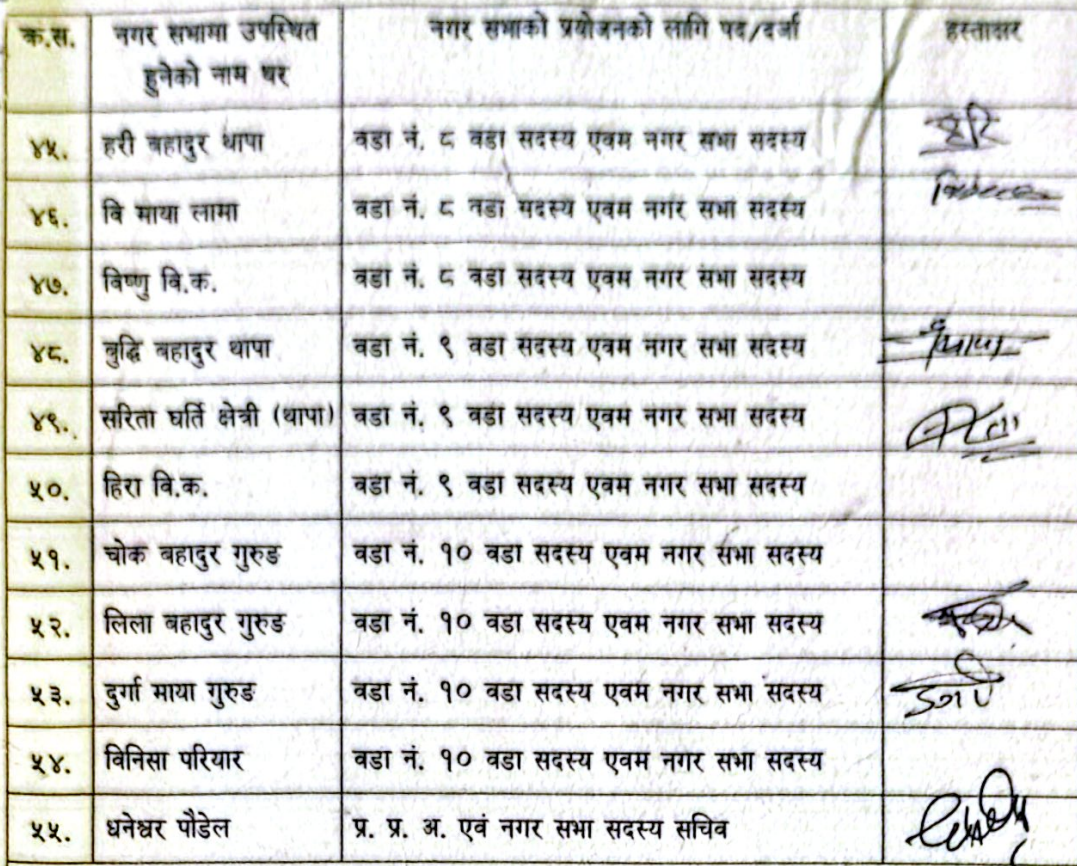 क्र.स. नगर सभामा उपस्थित हुनेको नाम थर नगर सभाको प्रयोजनको लागि पद/दर्जा हस्ताक्षर
४५. हरी बहादुर थापा वडा नं. ८ वडा सदस्य एवम नगर सभा सदस्य हरि
४६. वि माया लामा वडा नं. ८ वडा सदस्य एवम नगर सभा सदस्य
४७. विष्णु वि.क. वडा नं. ८ वडा सदस्य एवम नगर सभा सदस्य
४८. बुद्धि बहादुर थापा वडा नं. ९ वडा सदस्य एवम नगर सभा सदस्य
४९. सरिता घर्ति क्षेत्री (थापा) वडा नं. ९ वडा सदस्य एवम नगर सभा सदस्य
५०. हिरा वि.क. वडा नं. ९ वडा सदस्य एवम नगर सभा सदस्य
५१. चोक बहादुर गुरुङ वडा नं. १० वडा सदस्य एवम नगर सभा सदस्य
५२. लिला बहादुर गुरुङ वडा नं. १० वडा सदस्य एवम नगर सभा सदस्य
५३. दुर्गा माया गुरुङ वडा नं. १० वडा सदस्य एवम नगर सभा सदस्य
५४. विनिसा परियार वडा नं. १० वडा सदस्य एवम नगर सभा सदस्य
५५. धनेश्वर पौडेल प्र. प्र. अ. एवं नगर सभा सदस्य सचिव